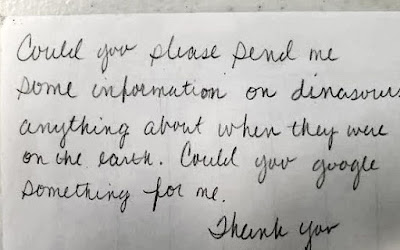 Could you please send me
some information on dinasours
anything about when they were
on the earth. Could you google
something for me.
Thank you